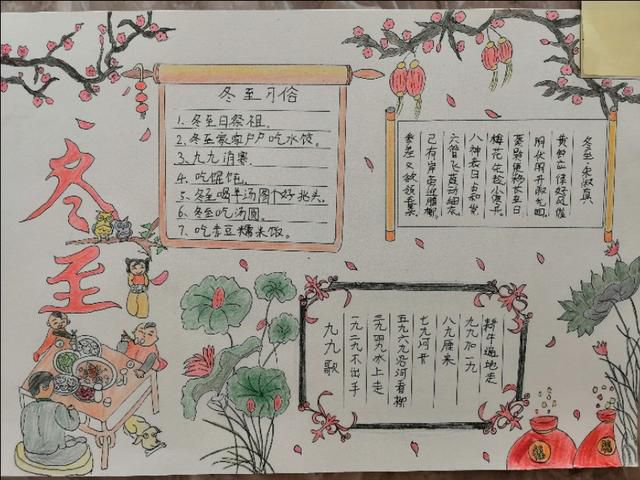 冬至
冬至习俗
1、冬至日祭祖。
2、冬至家家户户吃水饺。
3、九九消寒。
4、吃馄饨。
5、冬至喝羊汤图个好兆头。
6、冬至吃汤圆。
7、吃赤豆糯米饭。
冬至·朱淑真
黄钟应律好风催
阴伏阳升淑气回
葵影便移长至日
梅花先趁小寒开
八神表日占和岁
六管飞葭动细灰
已有岸旁迎腊柳
参差又欲领春来
九九歌
一九二九不出手
三九四九冰上走
五九六九沿河看柳
七九河开
八九雁来
九九加一九
耕牛遍地走
福
福